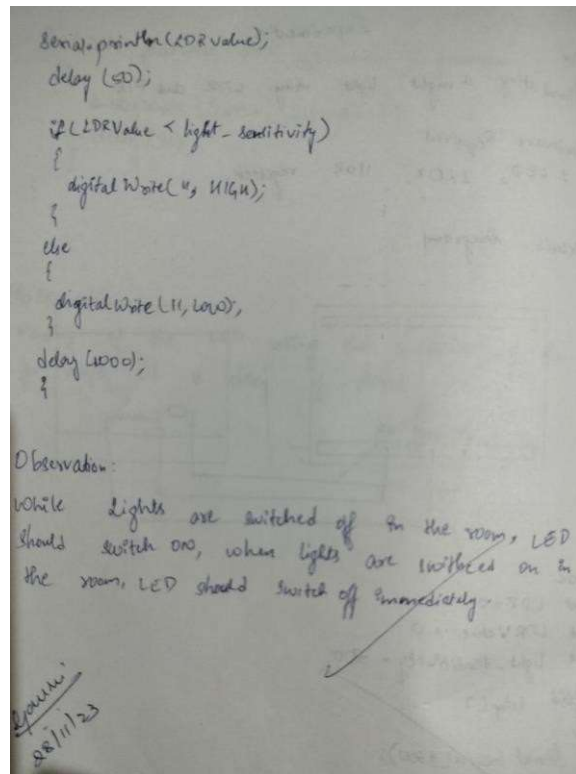 Serial.println(LDRValue);
delay(50);
if(LDRValue < light_sensitivity)
{
digitalWrite(11, HIGH);
}
else
{
digitalWrite(11, LOW);
}
delay(1000);
}
Observation:
While Lights are switched off in the room, LED
should switch on, when lights are switched on in
the room, LED should switch off immediately.
28/11/23